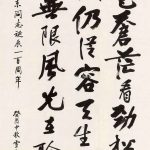 色蒼茫看勁松
仍從容天生
無限風光在險
東同志誕辰一百周年 癸酉中秋書